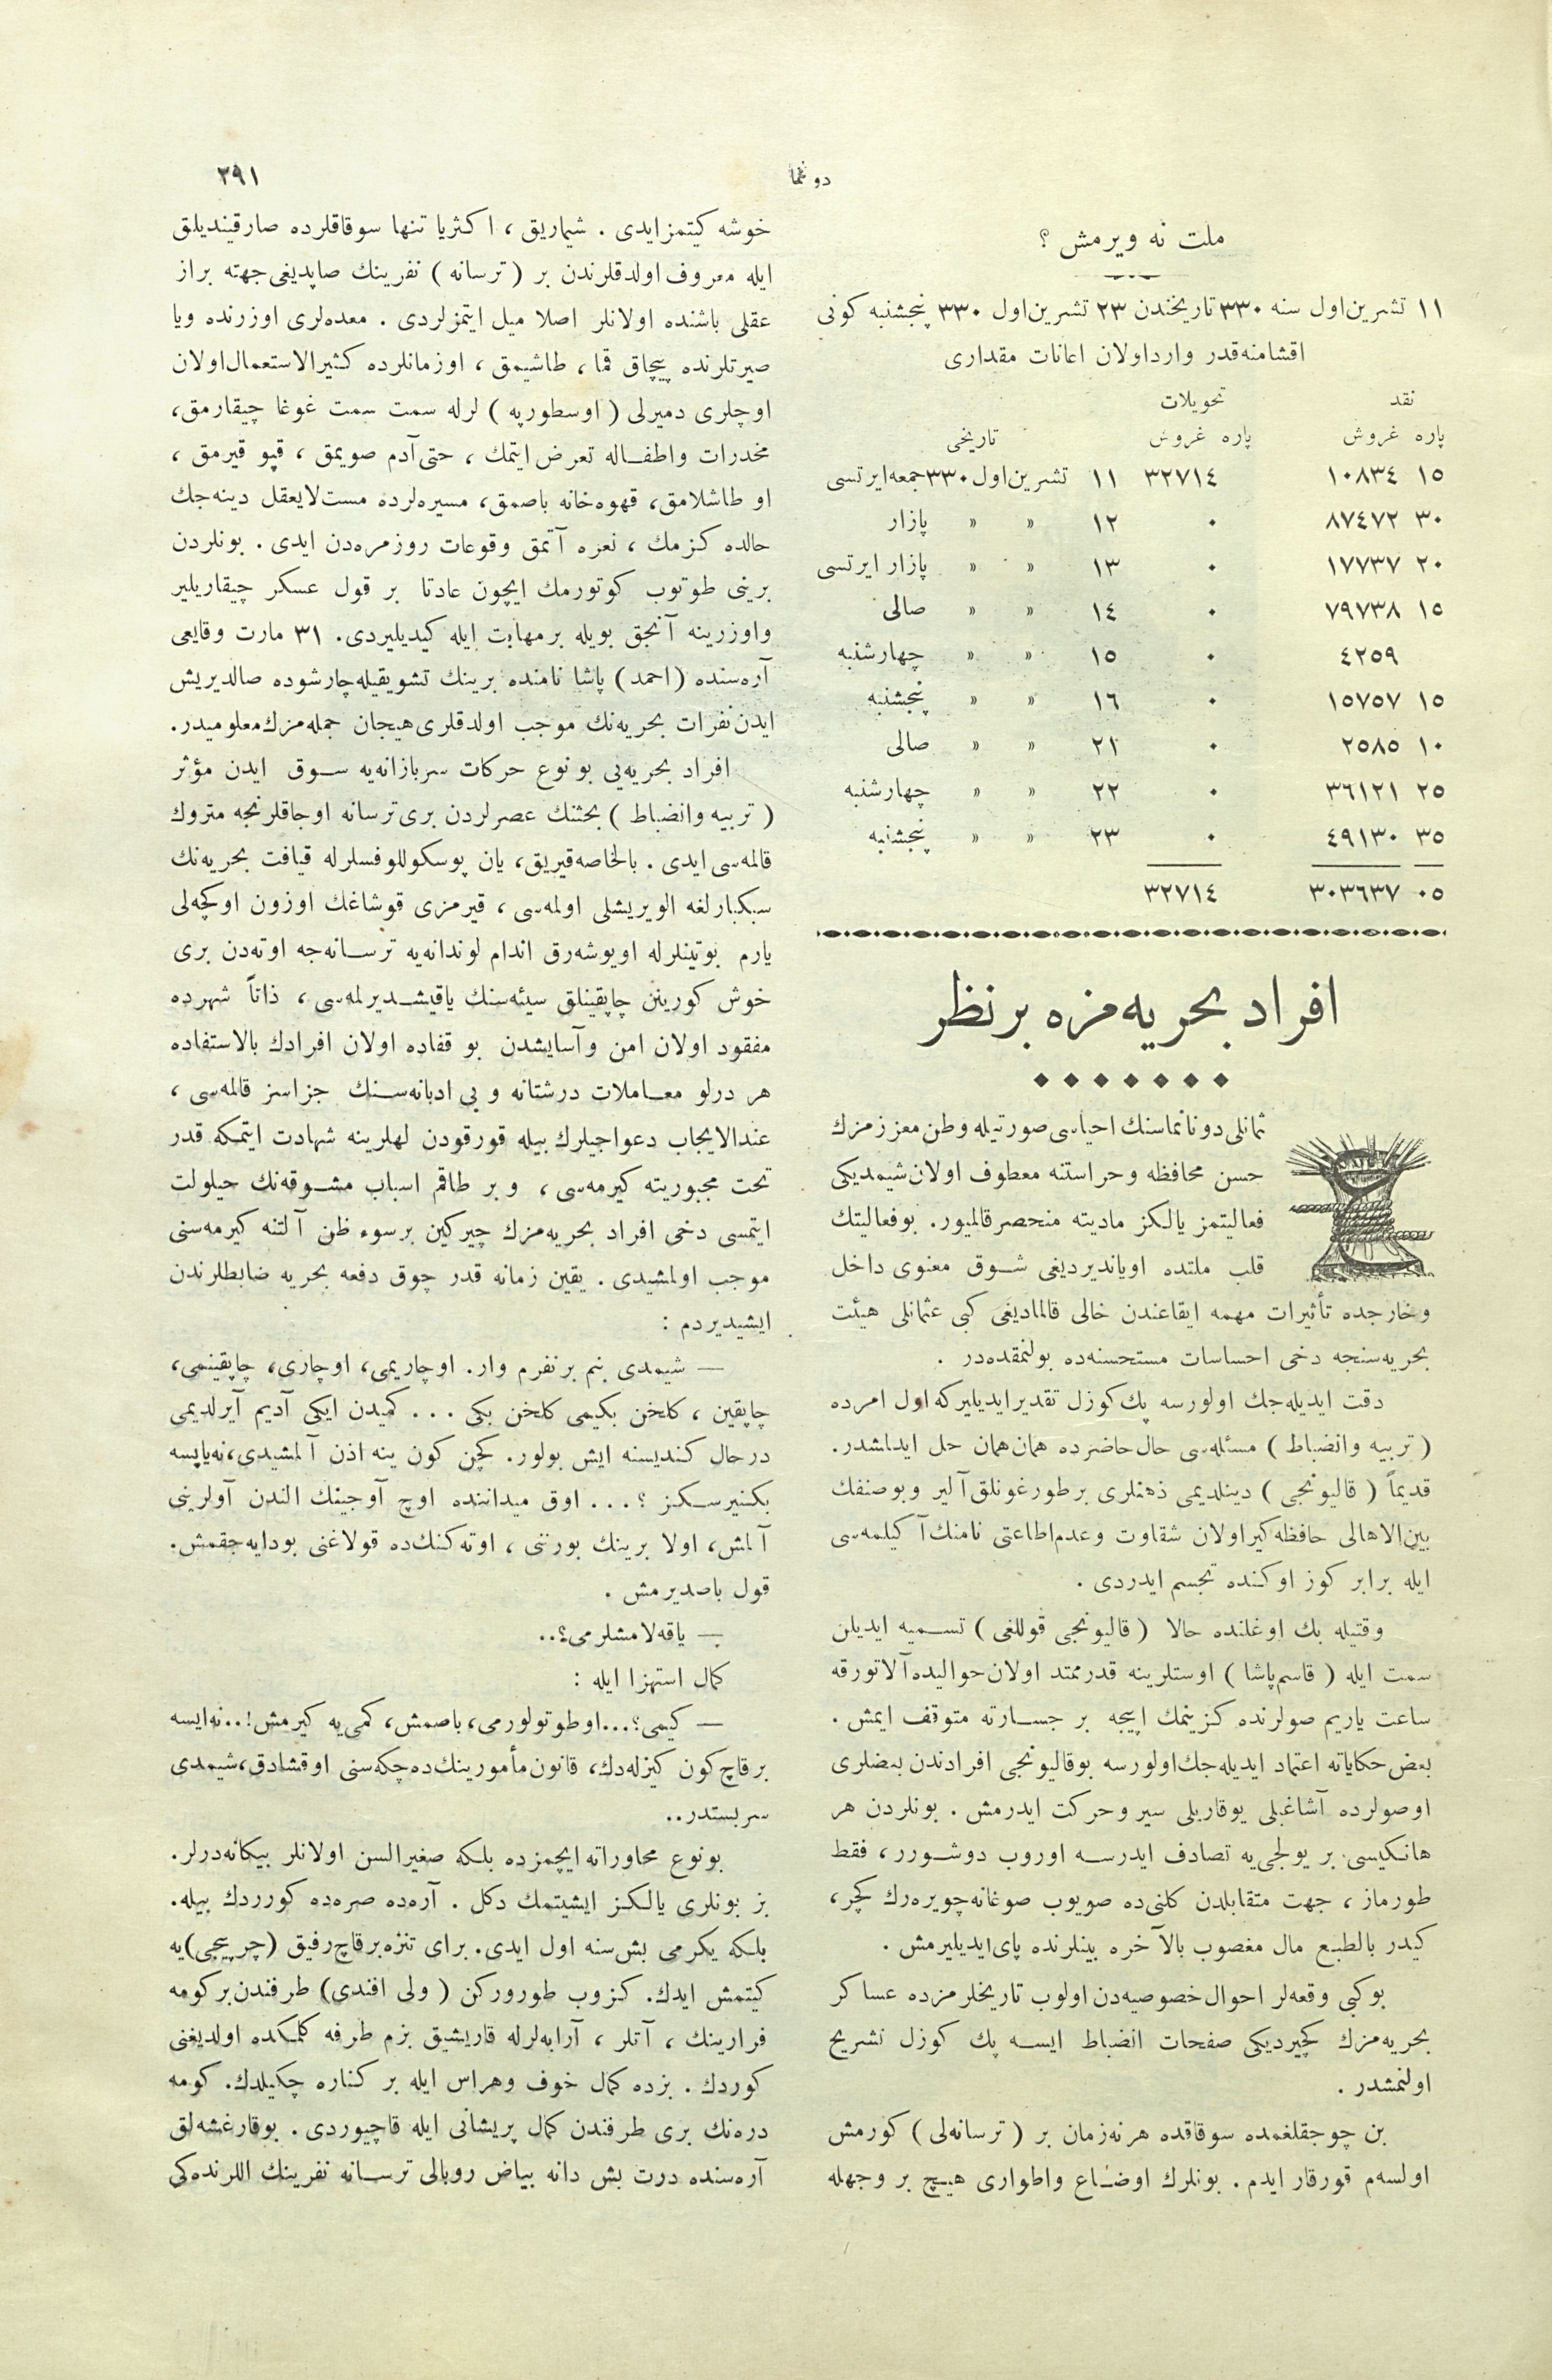 دونما
٢٩١
ملت نه ويرمش ؟
١١ تشرين‌اول سنه ٣٣٠ تاريخندن ٢٣ تشرين‌اول ٣٣٠ پنجشنبه كونى
اقشامنه‌قدر وارداولان اعانات مقدارى
نقد تحويلات
پاره غروش پاره غروش تاريخى
١٥ ١٠٨٣٤ ٣٢٧١٤ ١١ تشرين‌اول ٣٣٠ جمعه‌ايرتسى
٣٠ ٨٧٤٧٢ ٠ ١٢ » » پازار
٢٠ ١٧٧٣٧ ٠ ١٣ » » پازار ايرتسى
١٥ ٧٩٧٣٨ ٠ ١٤ » » صالى
٤٢٥٩ ٠ ١٥ » » چهارشنبه
١٥ ١٥٧٥٧ ٠ ١٦ » » پنجشنبه
١٠ ٢٥٨٥ ٠ ٢١ » » صالى
٢٥ ٣٦١٢١ ٠ ٢٢ » » چهارشنبه
٣٥ ٤٩١٣٠ ٠ ٢٣ » » پنجشنبه
٠٥ ٣٠٣٦٣٧ ٣٢٧١٤
افراد بحريه‌مزه برنظر
ثمانلى دونانماسنك احياسى صورتيله وطن معززمزك
حسن محافظه وحراستنه معطوف اولان شيمديكى
فعاليتمز يالكز ماديته منحصر قالميور. بوفعاليتك
قلب ملتده اوياندیرديغى شــوق معنوى داخل
وخارجده تأثيرات مهمه ايقاعندن خالى قالماديغى كبى عثمانلى هيئت
بحريه‌سنجه دخى احساسات مستحسنه‌ده بولنمقده‌در .
دقت ايديله‌جك اولورسه پك كوزل تقدير ايديليركه اول امرده
( تربيه وانضباط ) مسئله‌سى حال حاضرده همان‌همان حل ايدلمشدر.
قديماً ( قاليونجى ) دينلديمى ذهنلرى برطورغونلق آلير وبوصنفك
بين‌الاهالى حافظه‌كير اولان شقاوت وعدم‌اطاعتى نامنك آكيلمه‌سى
ايله برابر كوز اوكنده تجسم ايدردى .
وقتيله بك اوغلنده حالا ( قاليونجى قوللغى ) تســميه ايديلن
سمت ايله ( قاسم‌پاشا ) اوستلرينه قدر ممتد اولان حواليده آلاتورقه
ساعت ياريم صولرنده كزينمك اپيجه بر جســارته متوقف ايمش .
بعض حكاياته اعتماد ايديله‌جك‌اولورسه بوقاليونجى افرادندن بعضلرى
اوصولرده آشاغيلى يوقاريلى سير وحركت ايدرمش . بونلردن هر
هانكيسى بر يولجى‌يه تصادف ايدرســه اوروب دوشــورر ، فقط
طورماز ، جهت متقابلدن كلنى‌ده صويوب صوغانه‌چويره‌رك كچر ،
كيدر بالطبع مال مغصوب بالآخره بينلرنده پاى‌ايديليرمش .
بوكبى وقعه‌لر احوال خصوصيه‌دن اولوب تاريخلرمزده عساكر
بحريه‌مزك كچيرديكى صفحات انضباط ايســه پك كوزل تشريح
اولنمشدر .
بن چوجقلغمده سوقاقده هرنه‌زمان بر ( ترسانه‌لى ) كورمش
اولسه‌م قورقار ايدم . بونلرك اوضــاع واطوارى هيــچ بر وجهله
خوشه كيتمزايدى . شيماريق ، اكثريا تنها سوقاقلرده صارقينديلق
ايله معروف اولدقلرندن بر ( ترسانه ) نفرينك صاپديغى جهته براز
عقلى باشنده اولانلر اصلا ميل ايتمزلردى . معده‌لرى اوزرنده ويا
صيرتلرنده پيچاق قما ، طاشيمق ، اوزمانلرده كثيرالاستعمال اولان
اوچلرى دميرلى ( اوسطورپه ) لرله سمت سمت غوغا چيقارمق ،
مخدرات واطفــاله تعرض ايتمك ، حتى آدم صويمق ، قپو قيرمق ،
او طاشلامق، قهوه‌خانه باصمق، مسيره‌لرده مست‌لايعقل دينه‌جك
حالده كزمك ، نعره آتمق وقوعات روزمره‌دن ايدى . بونلردن
برينى طوتوب كوتورمك ايچون عادتا بر قول عسكر چيقاريلير
واوزرينه آنجق بويله برمهابت ايله كيديليردى. ٣١ مارت وقايعى
آره‌سنده (احمد) پاشا نامنده برينك تشويقيله‌چارشوده صالديريش
ايدن نفرات بحريه‌نك موجب اولدقلرى هيجان جمله‌مزك معلوميدر.
افراد بحريه‌يى بو نوع حركات سربازانه‌يه ســوق ايدن مؤثر
( تربيه وانضباط ) بحثنك عصرلردن برى ترسانه اوجاقلرنجه متروك
قالمه‌سى ايدى . بالخاصه قيريق، يان پوسكوللو فسلرله قيافت بحريه‌نك
سبكبارلغه الويريشلى اولمه‌سى ، قيرمزى قوشاغك اوزون اوكچه‌لى
يارم بوتينلرله اويوشه‌رق اندام لوندانه‌يه ترســانه‌جه اوته‌دن برى
خوش كورينن چاپقينلق سيئه‌سنك ياقيشــديرلمه‌سى ، ذاتاً شهرده
مفقود اولان امن وآسايشدن بو قفاده اولان افرادك بالاستفاده
هر درلو معــاملات درشتانه و بى ادبانه‌ســنك جزاسز قالمه‌سى ،
عندالايجاب دعواجيلرك بيله قورقودن لهلرينه شهادت ايتمكه قدر
تحت مجبوريته كيرمه‌سى ، و بر طاقم اسباب مشــوقه‌نك حيلولت
ايتمسى دخى افراد بحريه‌مزك چيركين برسوء ظن آلتنه كيرمه‌سنى
موجب اولمشيدى . يقين زمانه قدر چوق دفعه بحريه ضابطلرندن
ايشيديردم :
— شيمدى بنم برنفرم وار. اوچاريمى، اوچارى، چاپقينمى،
چاپقين ، كلخن بكيمى كلخن بكى ... كميدن ايكى آديم آيرلديمى
درحال كنديسنه ايش بولور. كچن كون ينه اذن آلمشيدى، نه‌ياپسه
بكنيرســكز ؟ ... اوق ميداننده اوچ آوجينك الندن آولرينى
آلمش، اولا برينك بورننى ، اوته‌كنك‌ده قولاغنى بودايه‌جقمش.
قول باصديرمش .
— ياقه‌لامشلرمى؟..
كمال استهزا ايله :
— كيمى؟...اوطوتولورمى، باصمش، كمى‌يه كيرمش!..نه‌ايسه
برقاچ كون كيزله‌دك، قانون مأمورينك‌ده‌چكه‌سنى اوقشادق، شيمدى
سربستدر..
بونوع محاوراته ايچمزده بلكه صغيرالسن اولانلر بيكانه‌درلر.
بز بونلرى يالكــز ايشيتمك دكل . آره‌ده صره‌ده كورردك بيله.
بلكه يكرمى بش سنه اول ايدى. براى تنزه برقاچ رفيق (چرپيجى)يه
كيتمش ايدك. كــزوب طوروركن ( ولى افندى) طرفندن بركومه
فرارينك ، آتلر ، آرابه‌لرله قاريشيق بزم طرفه كلمكده اولديغنى
كوردك . بزده كمال خوف وهراس ايله بر كناره چكيلدك. كومه
دره‌نك برى طرفندن كمال پريشانى ايله قاچيوردى . بوقارغشه‌لق
آره‌سنده درت بش دانه بياض روبالى ترســانه نفرينك اللرنده‌كى